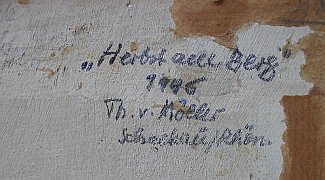 „Herbst am Berg"
1946
Th. v. Möller
Schackau/Rhön.